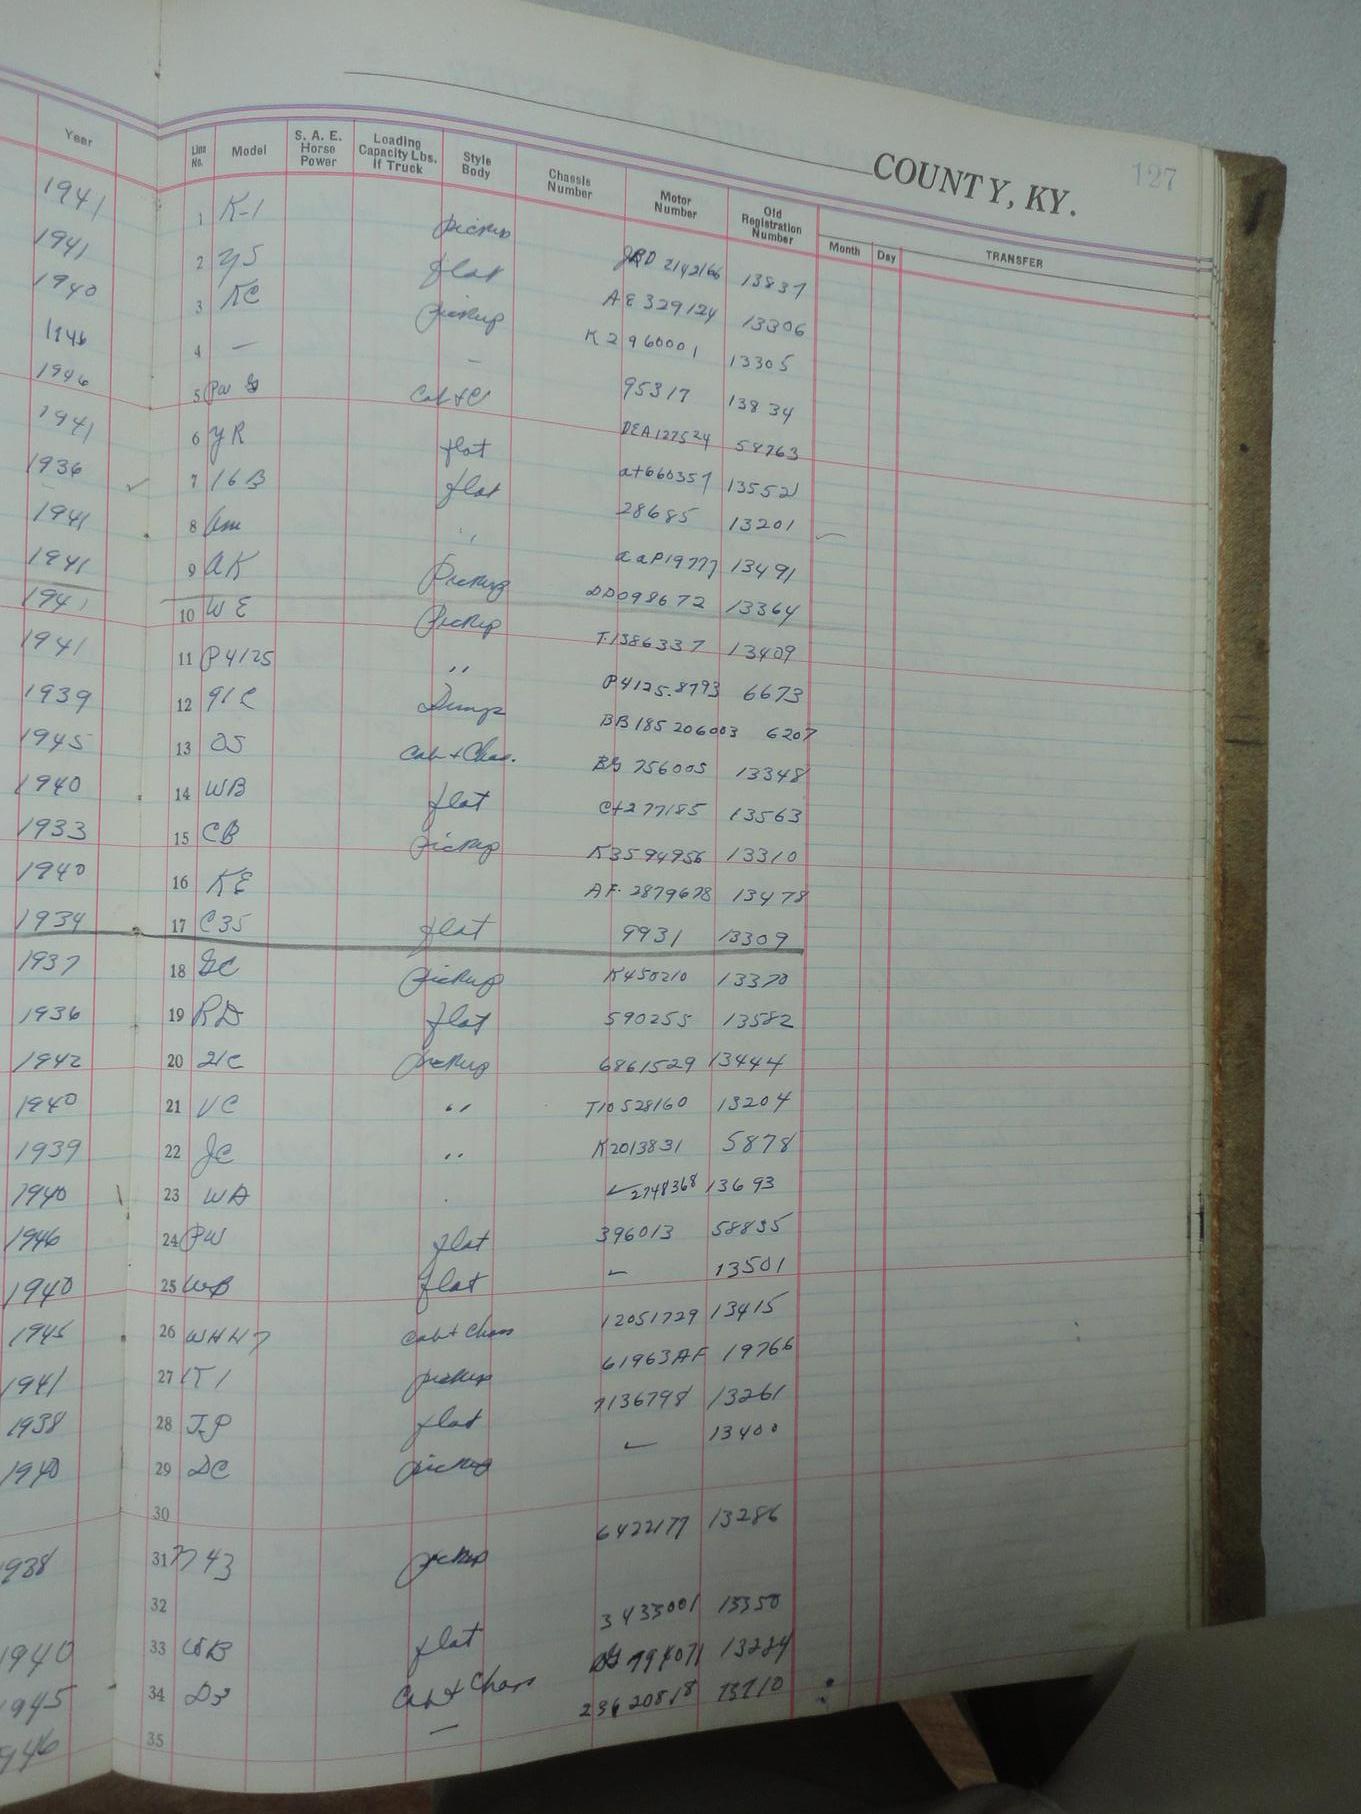 COUNTY, KY. 127
Year Line No. Model S. A. E. Horse Power Loading Capacity Lbs. If Truck Style Body Chassis Number Motor Number Old Registration Number Month Day TRANSFER
1941 1 K-1 pickup 2142166 13837
1941 2 YS flat AE 329124 13306
1940 3 KC pickup K2960001 13305
1946 4 — — 95317 13834
1946 5 Cab+C DEA127524 58763
1941 6 YR flat at660357 13552
1936 7 16B flat 28685 13201
1941 8 am " aaP19777 13491
1941 9 aK Pickup DD098672 13364
1941 10 WE Pickup T.1386337 13409
1941 11 P4125 " P4125.8793 6673
1939 12 91C Dump BB185206003 6207
1945 13 OS Cab + Chas. BG 756005 13348
1940 14 WB flat Ct277185 13563
1933 15 CB pickup K3594956 13310
1940 16 KE AF. 2879678 13478
1934 17 C35 flat 9931 13309
1937 18 GC pickup K450210 13370
1936 19 RD flat 590255 13582
1942 20 21C pickup 6861529 13444
1940 21 VC " T10528160 13204
1939 22 JC " K2013831 5878
1940 23 WA 2748368 13693
1946 24 PW flat 396013 58835
1940 25 WB flat 13501
1945 26 WHH7 Cab + Chass 12051729 13415
1941 27 K1 pickup 61963AF 19766
1938 28 J-P flat 7136798 13261
1940 29 DC pickup 13400
30
1938 31 7743 pickup 6422177 13286
32
1940 33 WB flat 3433001 13350
1945 34 D3 Cab + Chass 13284
1946 35 — 23620818 13710